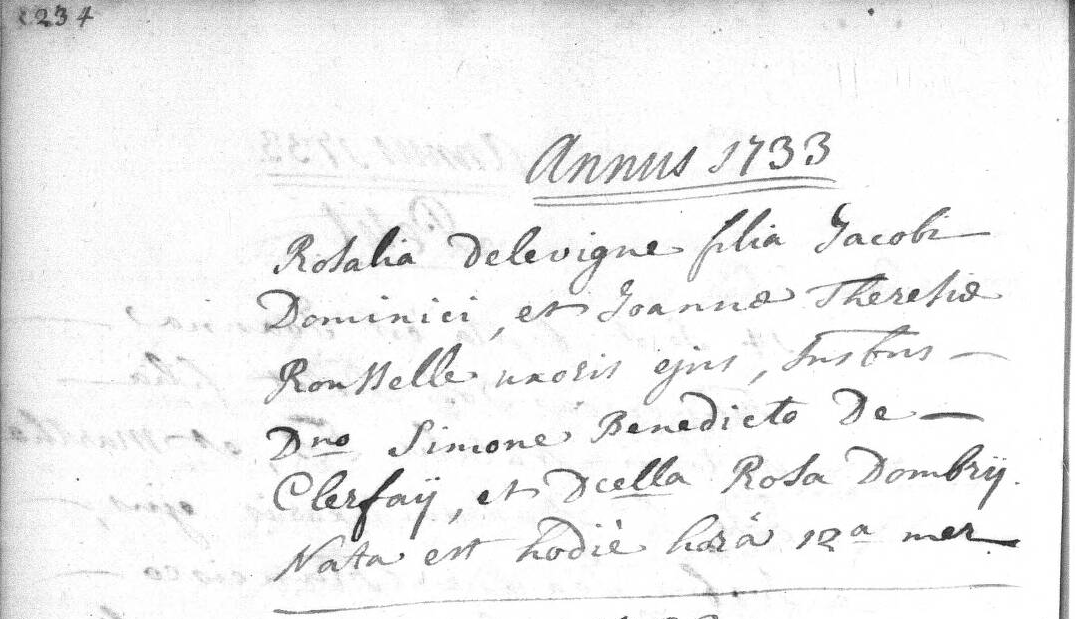 234
Annus 1733
Rosalia Delevigne filia Jacobi
Dominici, et Joannæ Theresiæ
Rousselle uxoris ejus, susb̅us
Dno Simone Benedicto De
Clerfaÿ, et Dcella Rosa Dombrÿ.
Nata est hodiè horâ 12a mer.